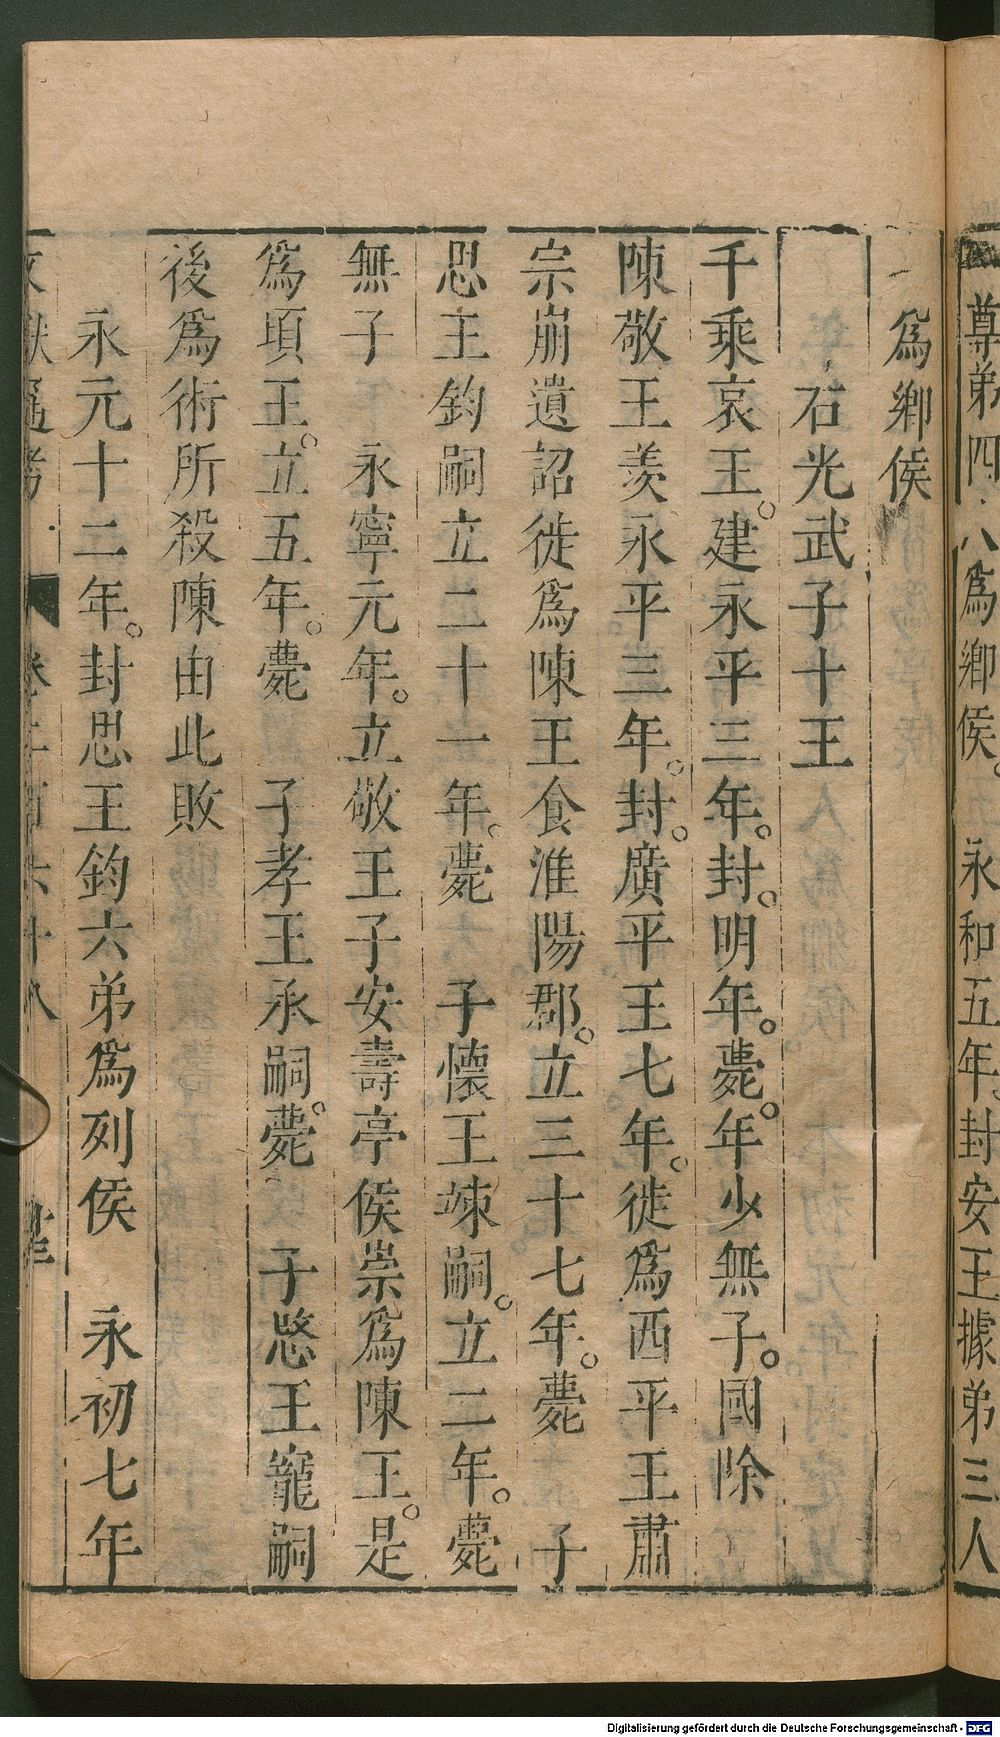 尊弟四八爲鄉侯。永和五年。封安王據弟三人
爲鄉侯
右光武子十王
千乘哀王。建永平三年。封。明年。薨。年少無子。國除
陳敬王羡永平三年。封。廣平王七年。徙爲西平王肅
宗崩遺詔徙爲陳王食淮陽郡。立三十七年。薨　子
思王鈞嗣立二十一年。薨　子懷王竦嗣。立二年。薨
無子　永寧元年。立敬王子安壽亭侯崇爲陳王。是
爲頃王。立五年。薨　子孝王承嗣。薨　子愍王寵嗣
後爲術所殺陳由此敗
永元十二年。封思王鈞六弟爲列侯　永初七年
文獻通考　卷二百六十八
Digitalisierung gefördert durch die Deutsche Forschungsgemeinschaft - DFG